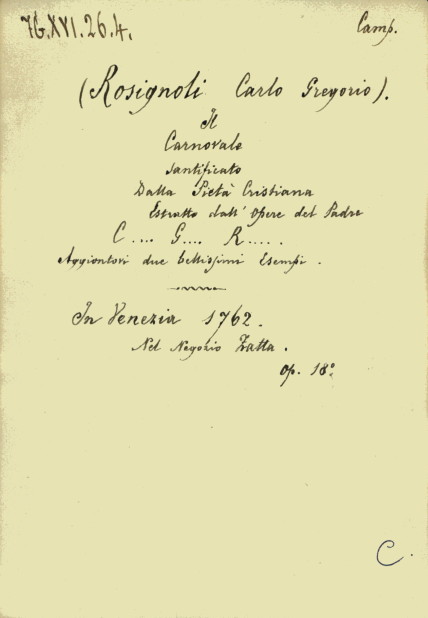 7G.XVI.26.4.
Camp.
(Rosignoli Carlo Gregorio).
Il
Carnovale
santificato
Dalla Pietà Cristiana
Estratto dall' Opere del Padre
C.... G.... R.....
Aggiontovi due bellissimi Esempi.
In Venezia 1762.
Nel Negozio Zatta.
Op. 18°
C.